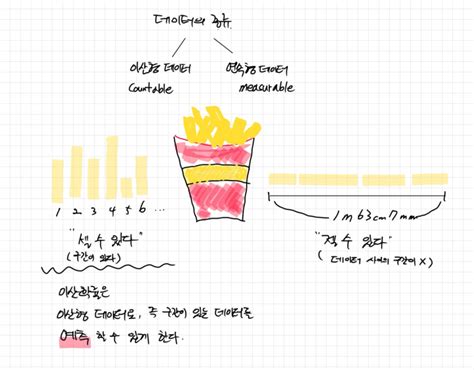 데이터의 종류
이산형 데이터
Countable
연속형 데이터
measurable
1 2 3 4 5 6 ...
1m 63cm 7mm
"셀 수 있다"
(구간이 있다)
"잴 수 있다"
(데이터 사이의 구간이 X)
이산확률은
이산형 데이터로, 즉 구간이 있는 데이터를
예측 할 수 있게 한다.